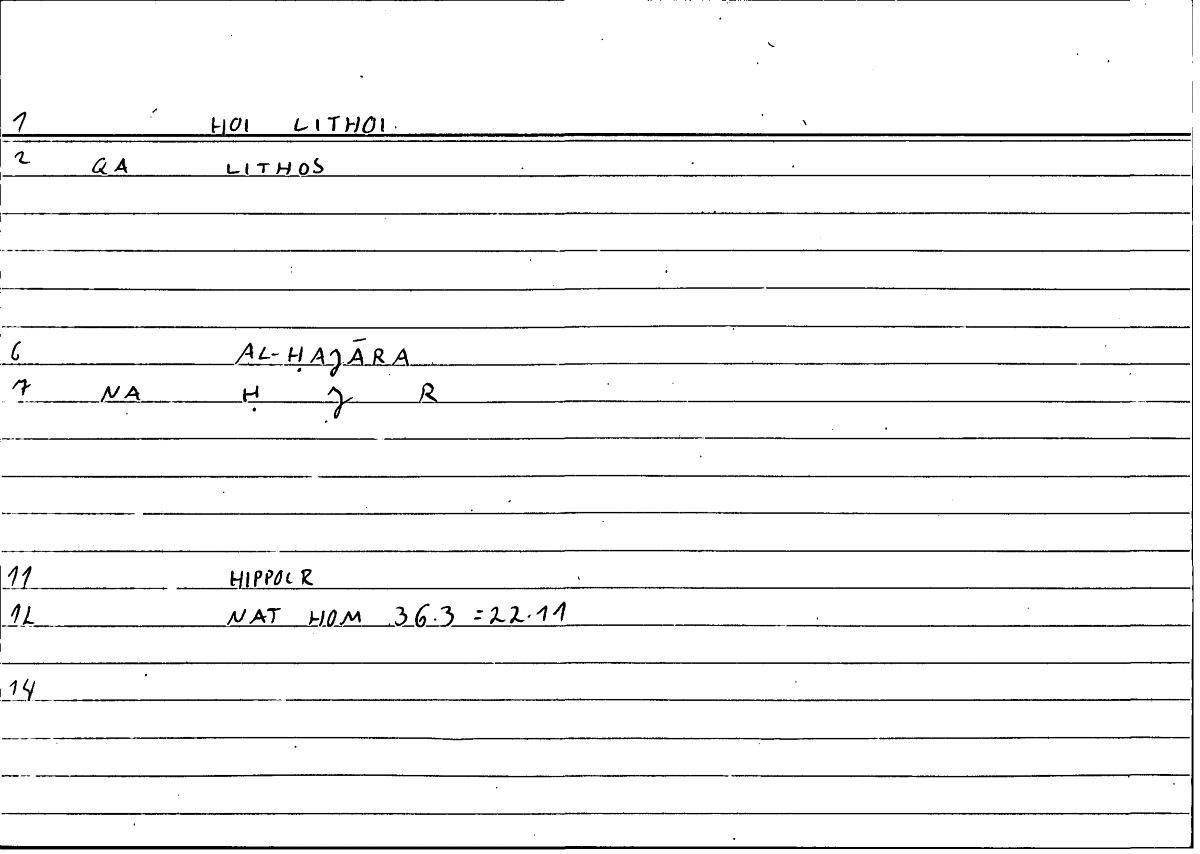 1 HOI LITHOI
2 QA LITHOS
6 AL-ḤAJĀRA
7 NA Ḥ J R
11 HIPPOCR
12 NAT HOM 36.3 =22.11
14